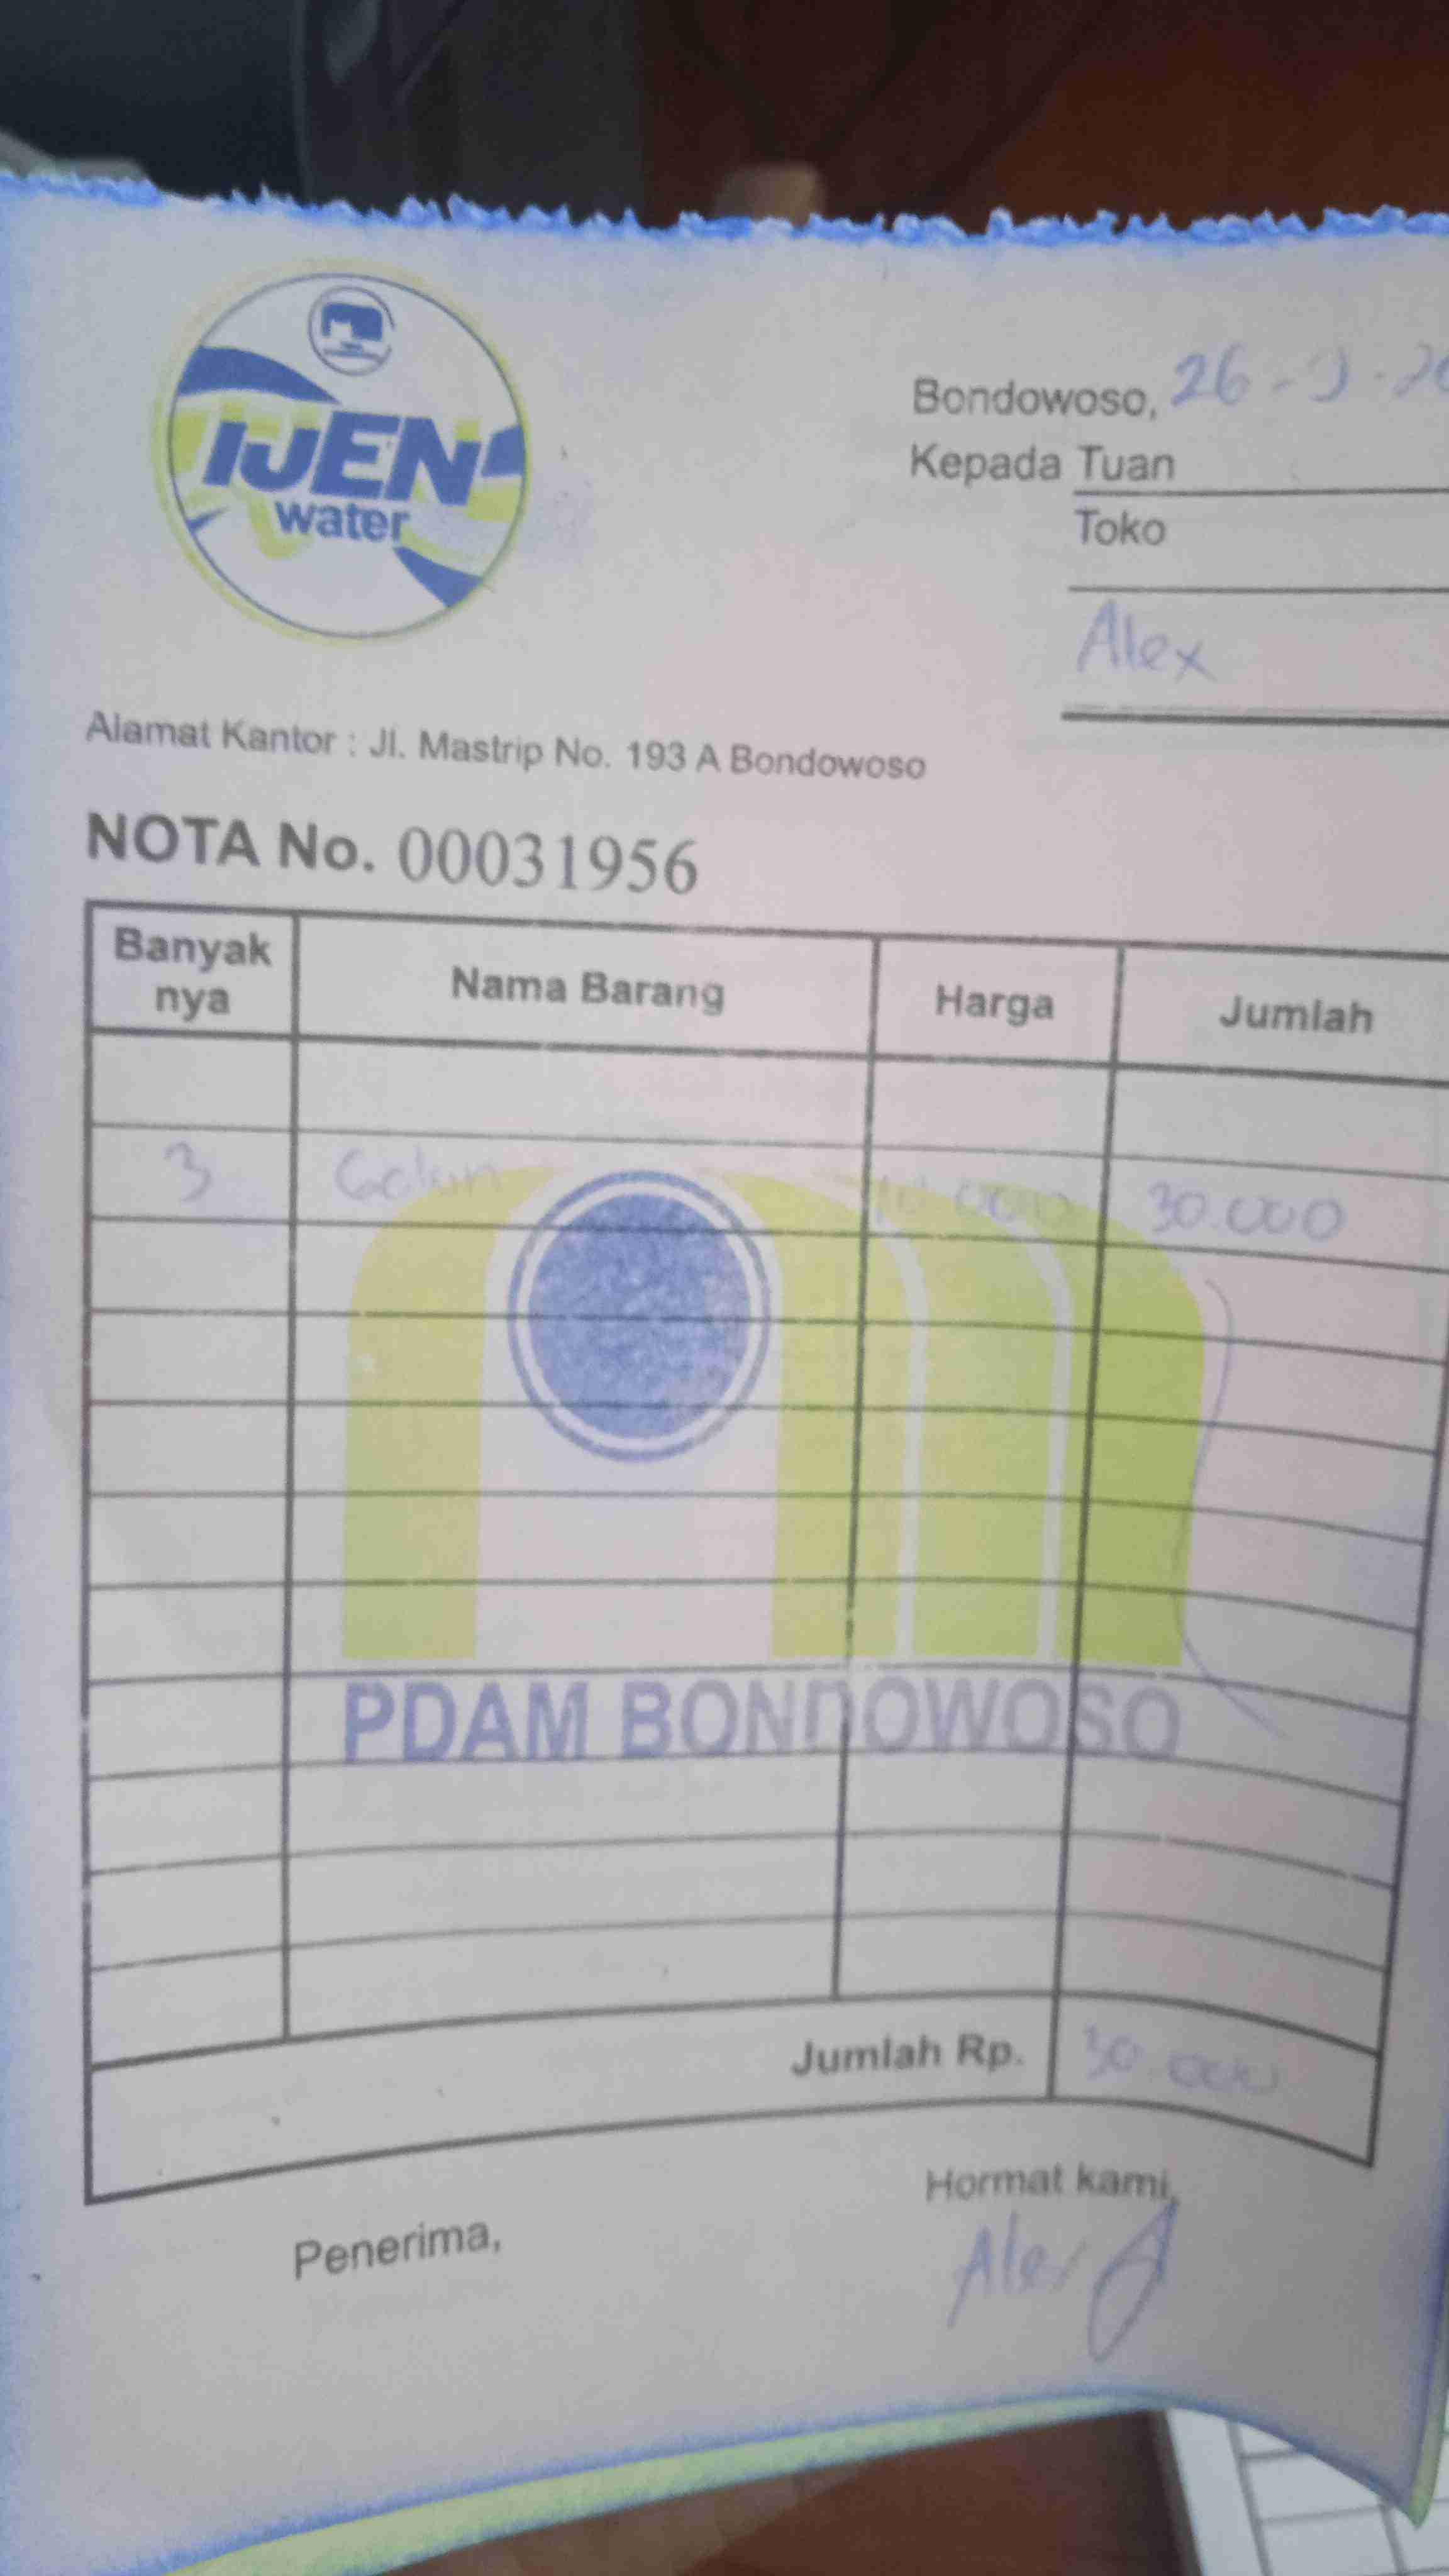 IJEN
water
Bondowoso, 26 -
Kepada Tuan
Toko
Alex
Alamat Kantor : Jl. Mastrip No. 193 A Bondowoso
NOTA No. 00031956
Banyak nya Nama Barang Harga Jumlah
3 Galon 10.000 30.000
PDAM BONDOWOSO
Jumlah Rp. 30.000
Hormat kami,
Penerima,
Alex